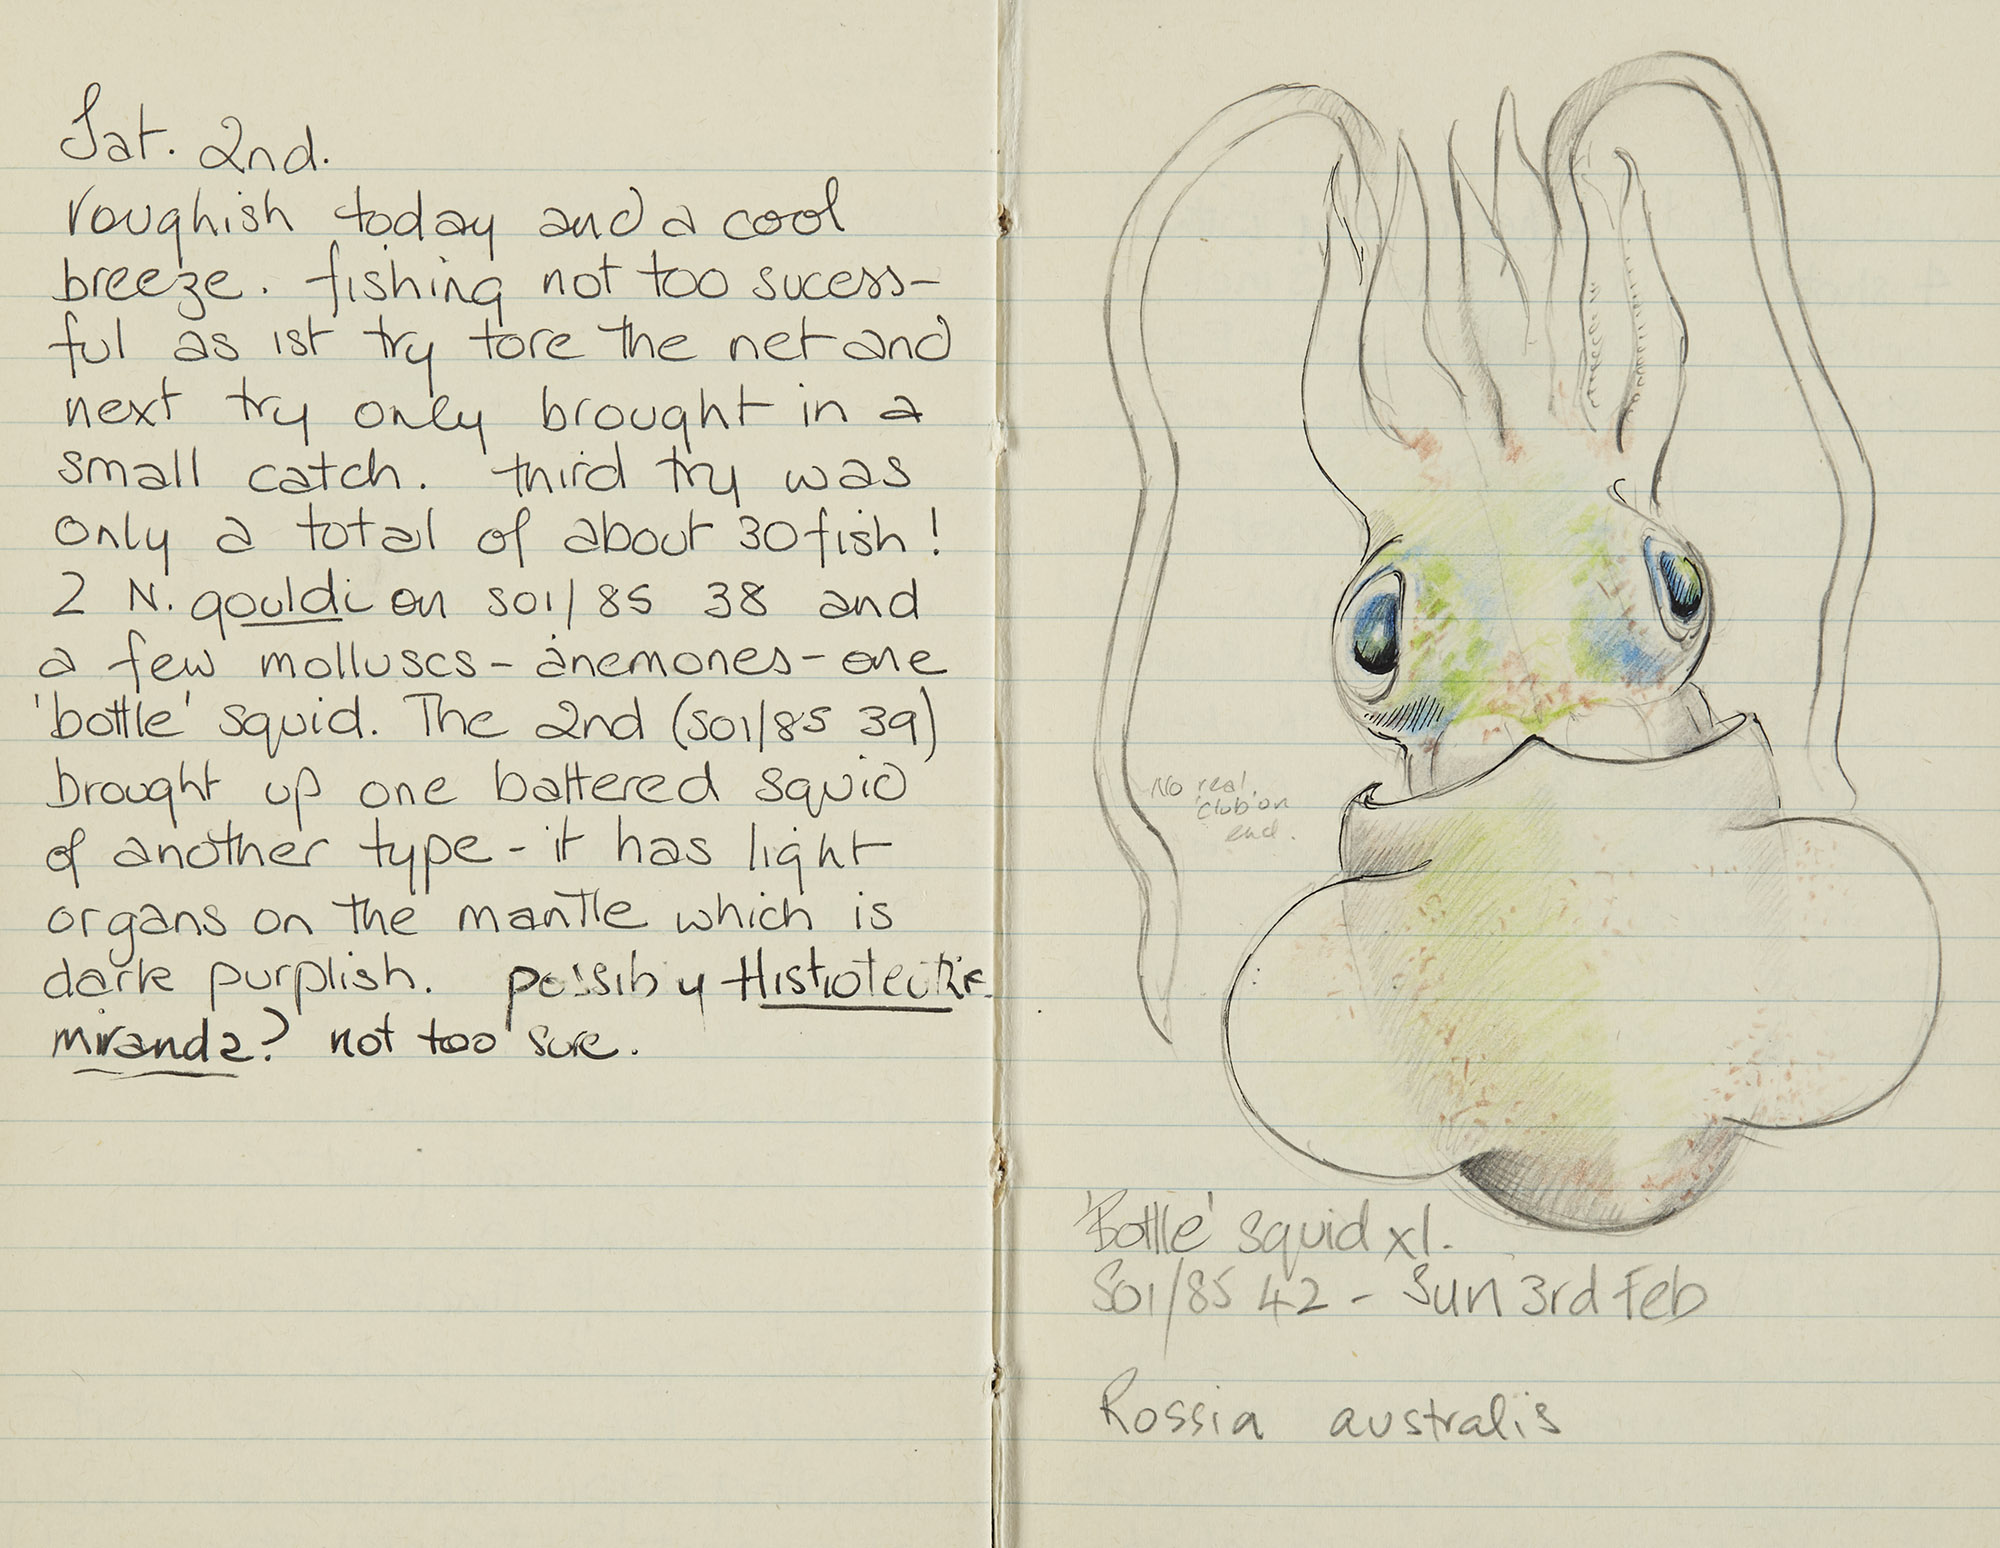 Sat. 2nd.
roughish today and a cool
breeze. fishing not too sucess-
ful as 1st try tore the net and
next try only brought in a
small catch. third try was
only a total of about 30 fish!
2 N. gouldi on S01/85 38 and
a few molluscs - anemones - one
'bottle' squid. The 2nd (S01/85 39)
brought up one battered squid
of another type - it has light
organs on the mantle which is
dark purplish. possibly
miranda? not too sure.
No real
'club' on
end.
'Bottle' squid x1.
S01/85 42 - Sun 3rd Feb
Rossia australis